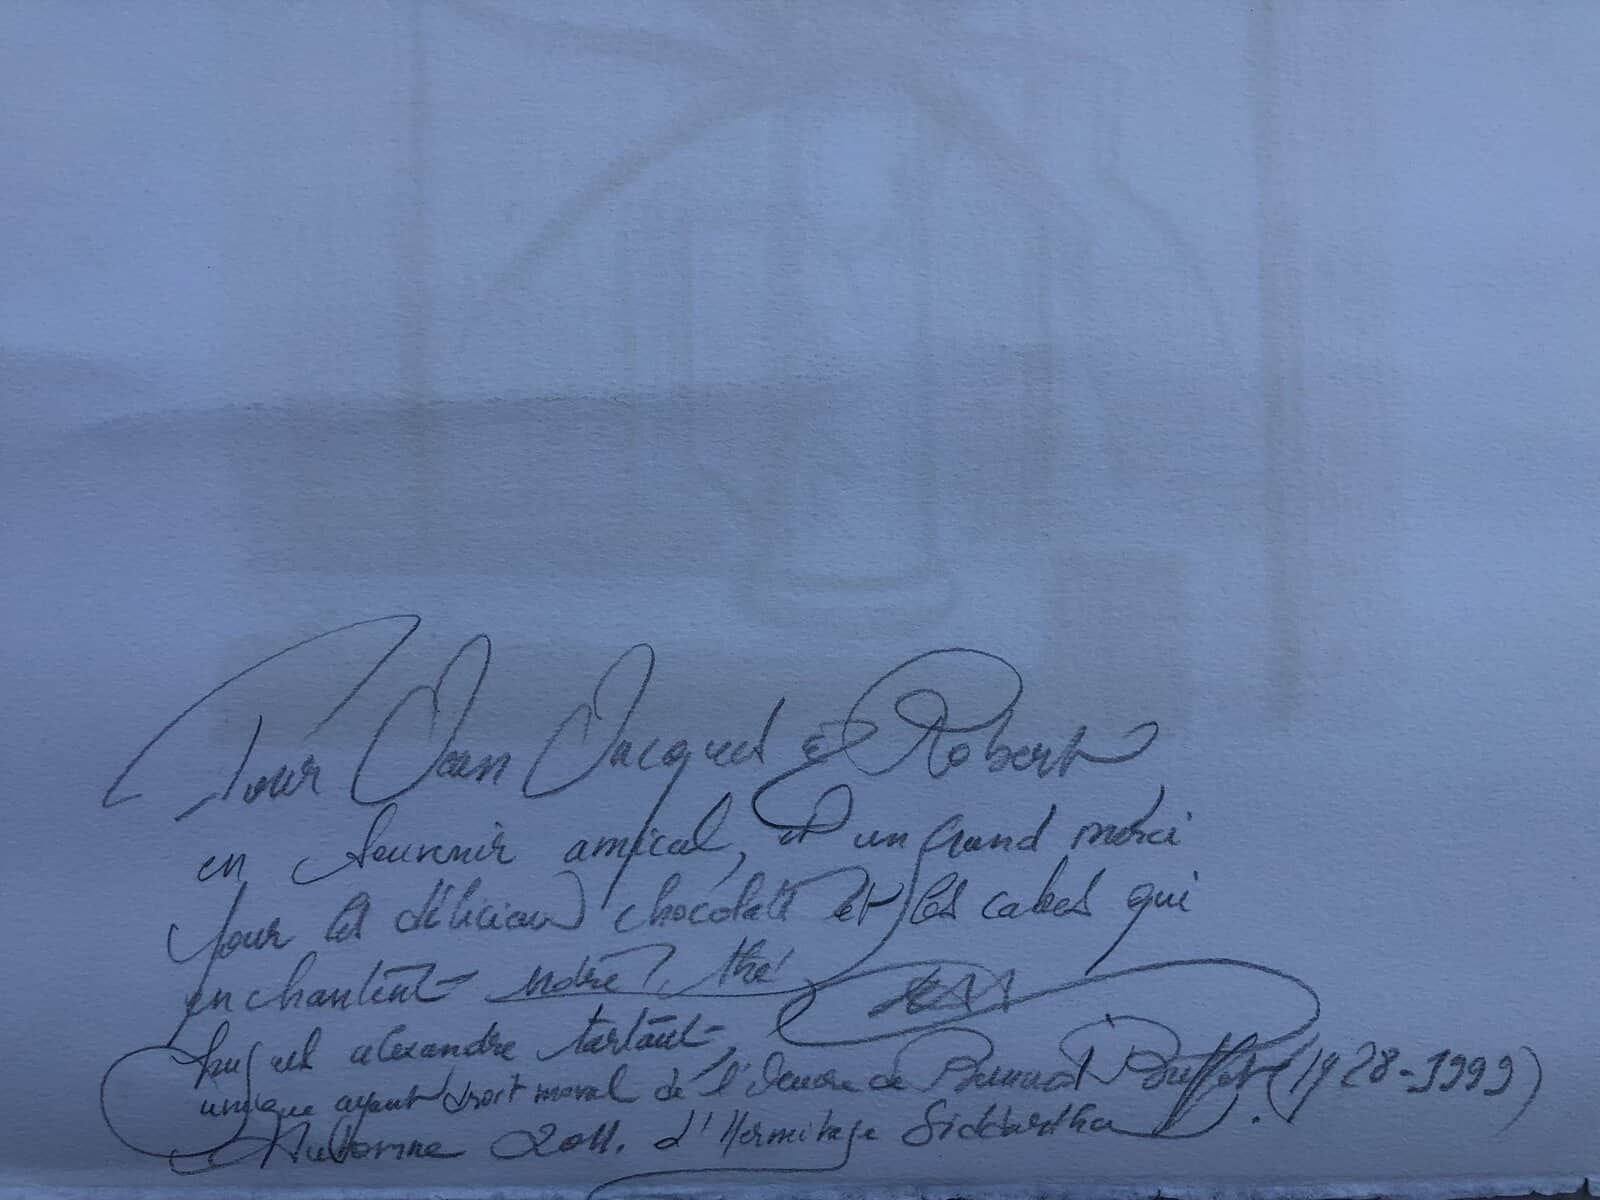 Pour Jean Jacques & Robert
en souvenir amical, et un grand merci
pour les délicieux chocolats et les cakes qui
enchantent notre thé
Hugues alexandre tartaut
unique ayant droit moral de l'Oeuvre de Bernard Buffet (1928-1999)
Automne 2011. d'Hermitage Siddartha